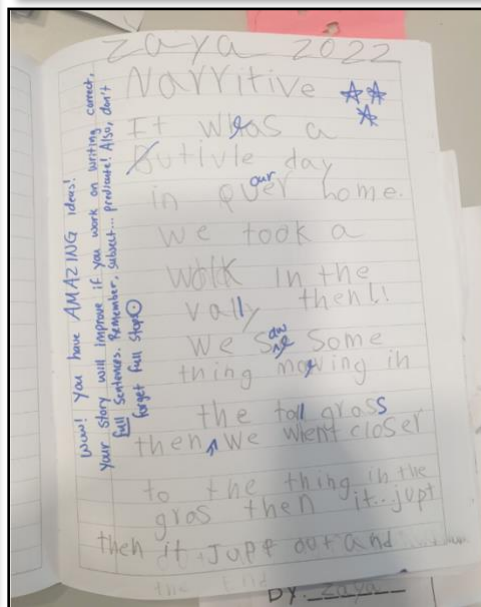 zaya 2022
Narritive
It was a
Butivle day
in our home.
we took a
walk in the
vally then!!
we saw some
thing moving in
the tall gross
then, we went closer
to the thing in the
gros then it.. jupt
then it Jupt out and
the End
By. zaya
Wow! You have AMAZING ideas!
Your story will improve if you work on writing correct,
full sentences. Remember, subject... predicate! Also, don't
forget full stops